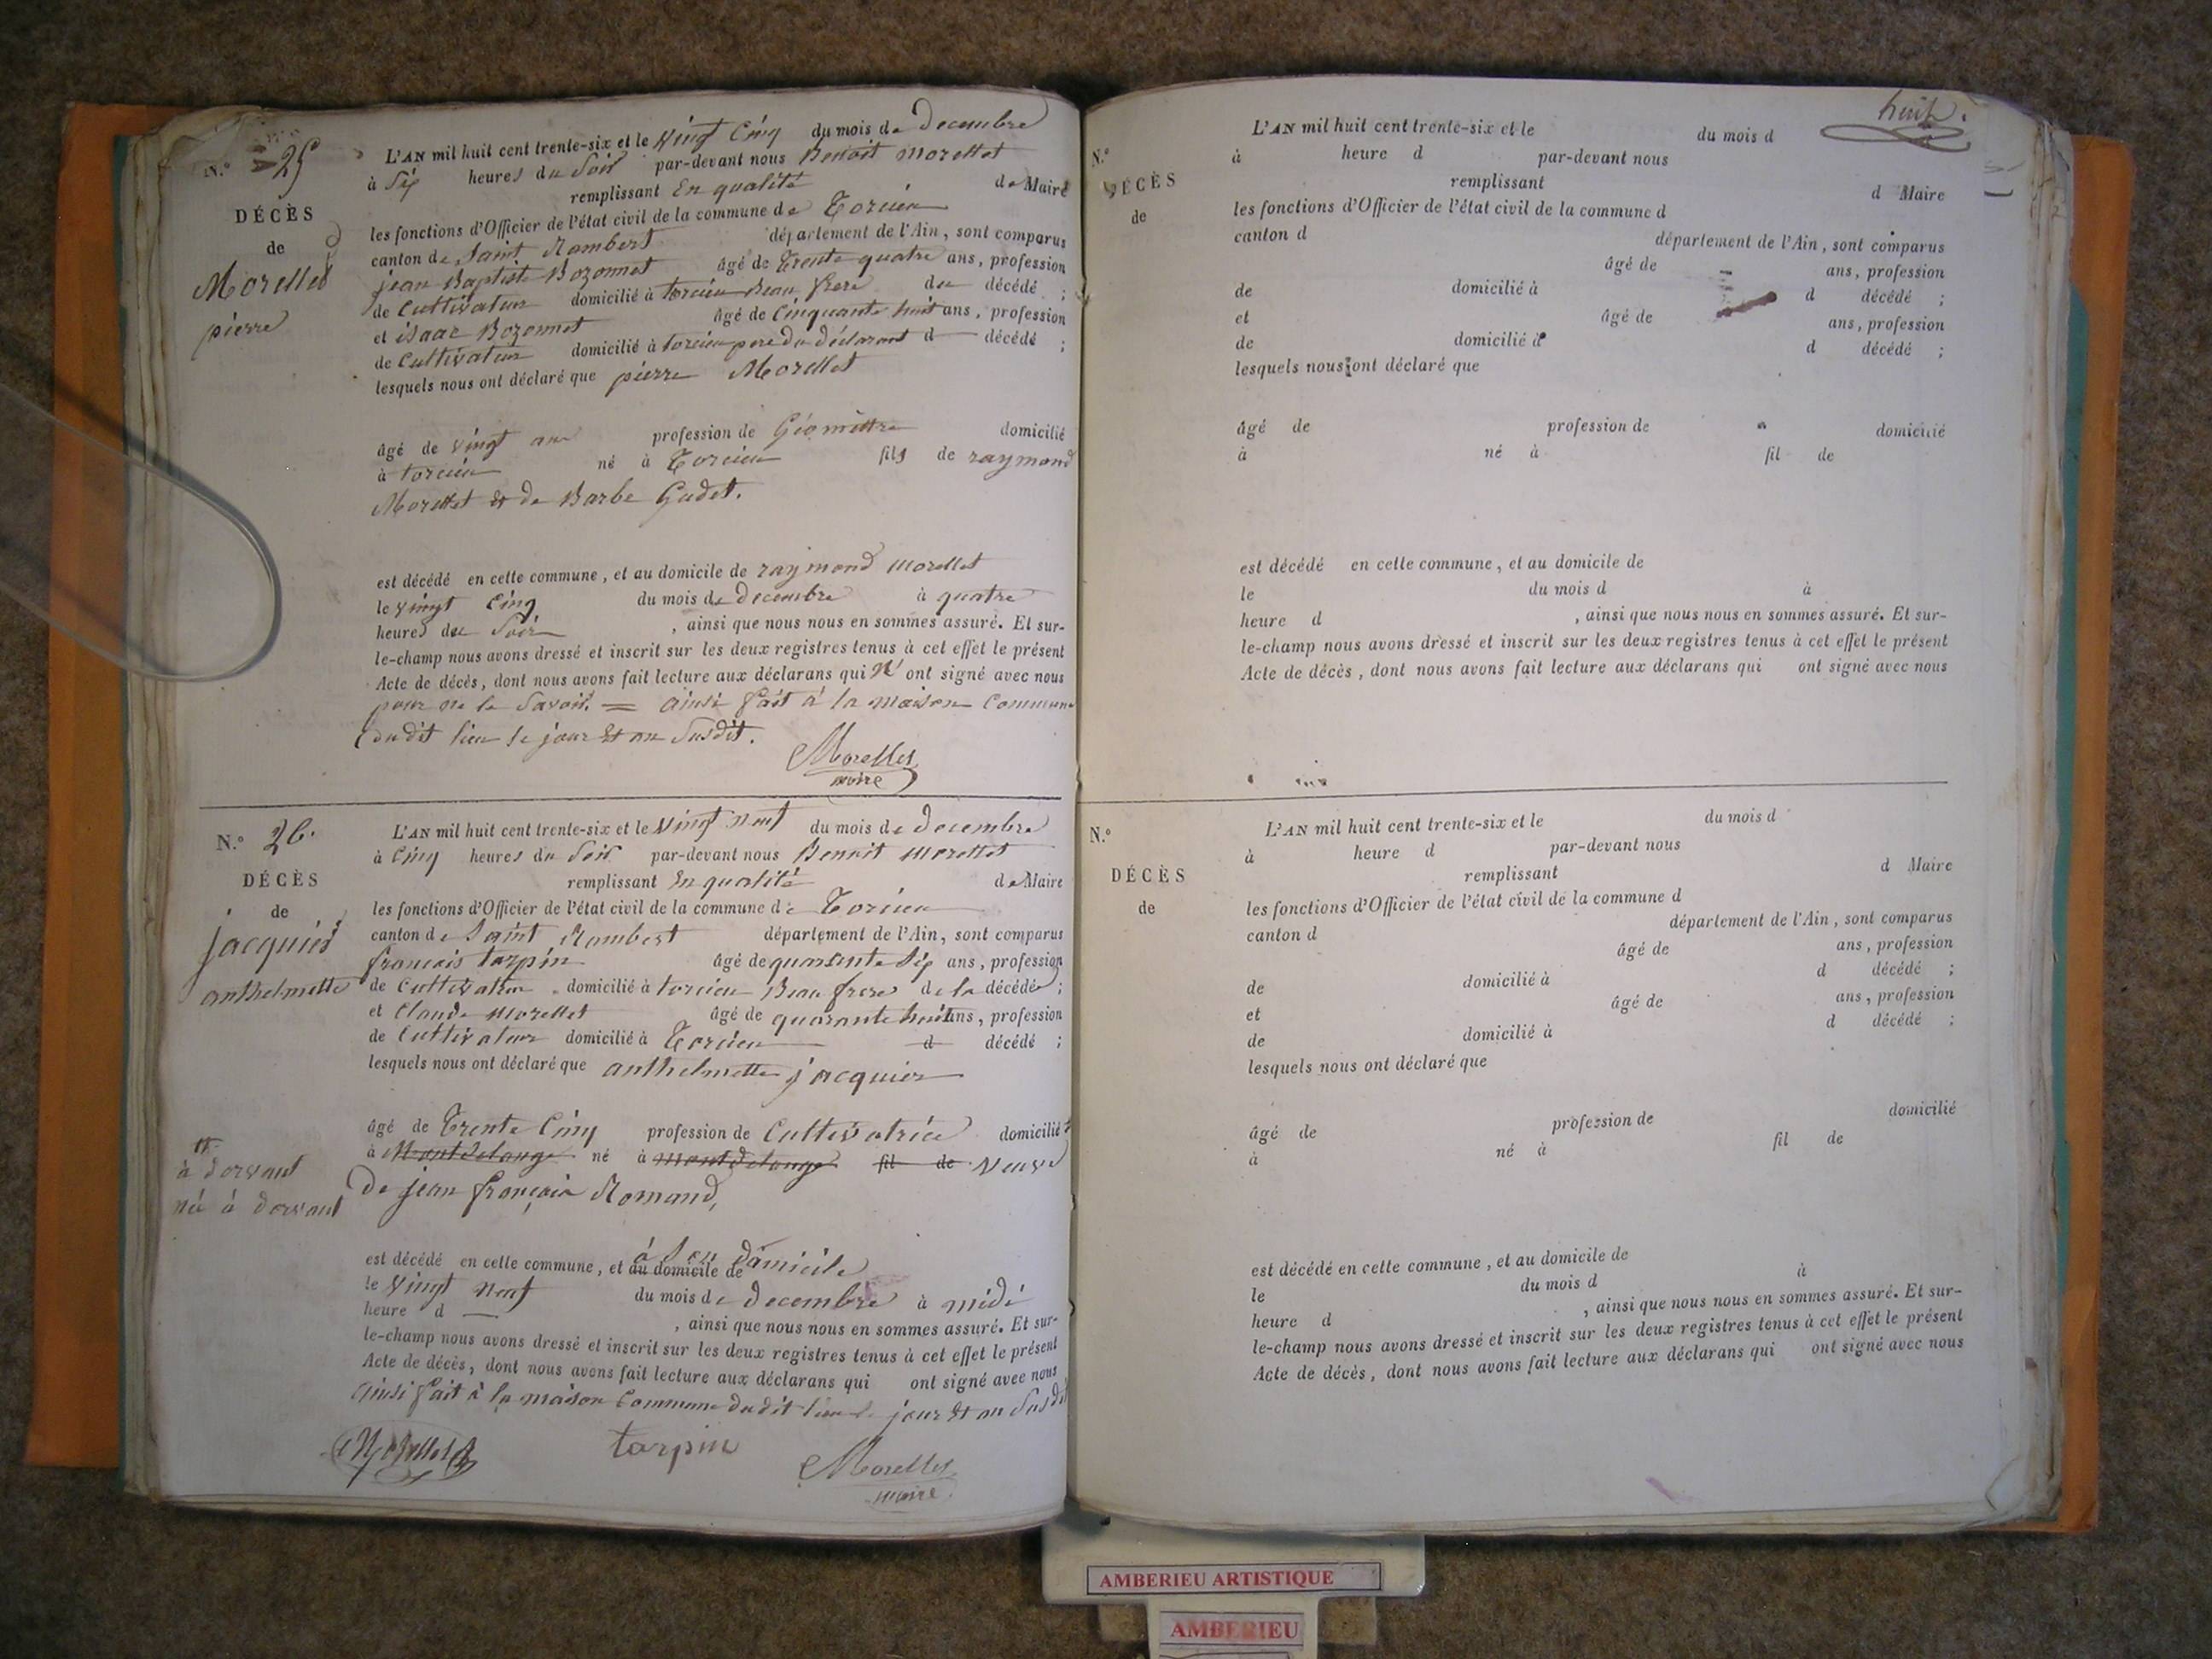 N.° 25
DÉCÈS
de
Morellet
pierre
L'AN mil huit cent trente-six et le vingt Cinq du mois de decembre
à Six heures du Soir par-devant nous Benoit Morellet
remplissant En qualité de Maire
les fonctions d'Officier de l'état civil de la commune de Torcieu
canton de Saint Rambert département de l'Ain, sont comparus
jean Baptiste Bozonnet âgé de Trente quatre ans, profession
de Cultivateur domicilié à torcieu Beau frere du décédé ;
et isaac Bozonnet âgé de Cinquante huit ans, profession
de Cultivateur domicilié à torcieu pere du déclarant d décédé ;
lesquels nous ont déclaré que pierre Morellet
âgé de vingt ans profession de Géomettre domicilié
à torcieu né à Torcieu fils de raymond
Morellet et de Barbe Gudet.
est décédé en cette commune, et au domicile de raymond Morellet
le vingt Cinq du mois de decembre à quatre
heures du Soir , ainsi que nous nous en sommes assuré. Et sur-
le-champ nous avons dressé et inscrit sur les deux registres tenus à cet effet le présent
Acte de décès, dont nous avons fait lecture aux déclarans qui N' ont signé avec nous
pour ne le Savoir. = ainsi fait à la maison Commune
dudit lieu le jour Et an Susdit.
Morellet
maire
N.° 26.
DÉCÈS
de
jacquier
anthelmette
L'AN mil huit cent trente-six et le Vingt neuf du mois de decembre
à Cinq heures du Soir par-devant nous Benoit Morellet
remplissant En qualité de Maire
les fonctions d'Officier de l'état civil de la commune de Torcieu
canton de Saint Rambert département de l'Ain, sont comparus
francois tarpin âgé de quarante Six ans, profession
de Cultivateur domicilié à torcieu Beau frere de la décédée ;
et Claude Morellet âgé de quarante huit ans, profession
de Cultivateur domicilié à Torcieu d décédé ;
lesquels nous ont déclaré que anthelmette jacquier
âgé de Trente Cinq profession de Cultivatrice domicilié
à Montdelange né à montdelange fil de Veuve
à dorvant
né à dorvant
De jean françois Romand,
est décédé en cette commune, et au domicile de à Son Domicile
le Vingt neuf du mois de decembre à midi
heure d , ainsi que nous nous en sommes assuré. Et sur-
le-champ nous avons dressé et inscrit sur les deux registres tenus à cet effet le présent
Acte de décès, dont nous avons fait lecture aux déclarans qui ont signé avec nous
ainsi fait à la maison Commune dudit lieu le jour Et an Susdit
Morellet tarpin Morellet
maire
huit.
N.°
DÉCÈS
de
L'AN mil huit cent trente-six et le du mois d
à heure d par-devant nous
remplissant d Maire
les fonctions d'Officier de l'état civil de la commune d
canton d département de l'Ain, sont comparus
âgé de ans, profession
de domicilié à d décédé ;
et âgé de ans, profession
de domicilié à d décédé ;
lesquels nous ont déclaré que
âgé de profession de domicilié
à né à fil de
est décédé en cette commune, et au domicile de
le du mois d à
heure d , ainsi que nous nous en sommes assuré. Et sur-
le-champ nous avons dressé et inscrit sur les deux registres tenus à cet effet le présent
Acte de décès, dont nous avons fait lecture aux déclarans qui ont signé avec nous
N.°
DÉCÈS
de
L'AN mil huit cent trente-six et le du mois d
à heure d par-devant nous
remplissant d Maire
les fonctions d'Officier de l'état civil de la commune d
canton d département de l'Ain, sont comparus
âgé de ans, profession
de domicilié à d décédé ;
et âgé de ans, profession
de domicilié à d décédé ;
lesquels nous ont déclaré que
âgé de profession de domicilié
à né à fil de
est décédé en cette commune, et au domicile de
le du mois d à
heure d , ainsi que nous nous en sommes assuré. Et sur-
le-champ nous avons dressé et inscrit sur les deux registres tenus à cet effet le présent
Acte de décès, dont nous avons fait lecture aux déclarans qui ont signé avec nous
AMBERIEU ARTISTIQUE
AMBERIEU